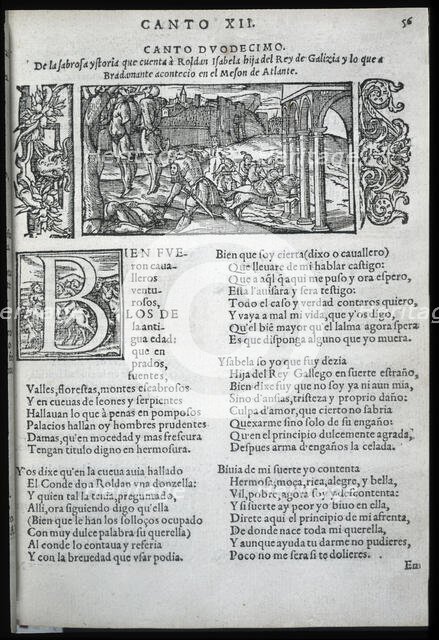 CANTO XII.
56
CANTO DVODECIMO.
De la sabrosa ystoria que cuenta à Roldan Isabela hija del Rey de Galizia y lo que a
Bradamante acontecio en el Meson de Atlante.
BIEN FVE-
ron caua-
lleros
ventu-
rosos,
LOS DE
la anti-
gua edad:
que en
prados,
fuentes,
Valles, florestas, montes escabrosos
Y en cueuas de leones y serpientes
Hallauan lo que à penas en pomposos
Palacios hallan oy hombres prudentes
Damas, qu'en mocedad y mas frescura
Tengan titulo digno en hermosura.
Y os dixe qu'en la cueua auia hallado
El Conde don Roldan vna donzella:
Y quien tal la tenia, preguntado,
Alli, ora siguiendo digo qu'ella
(Bien que le han los solloços ocupado
Con muy dulce palabra su querella)
Al conde lo contaua y referia
Y con la breuedad que vsar podia.
Bien que soy cierta (dixo o cauallero)
Que lleuare de mi hablar castigo:
Que a aq̃l q̃ aqui me puso y ora espero,
Esta l'auisara y sera testigo:
Todo el caso y verdad contaros quiero,
Y vaya a mal mi vida, que y'os digo,
Qu'el biē mayor qu'el lalma agora spera
Es que disponga alguno que yo muera.
Ysabela so yo que fuy dezia
Hija del Rey Gallego en suerte estraño,
Bien dixe fuy que no soy ya ni aun mia,
Sino d'ansias, tristeza y proprio daño:
Culpa d'amor, que cierto no sabria
Quexarme sino solo de su engaño:
Qu'en el principio dulcemente agrada,
Despues arma d'engaños la celada.
Biuia de mi suerte yo contenta
Hermosa, moça, rica, alegre, y bella,
Vil, pobre, agora soy y descontenta:
Y si suerte ay peor yo biuo en ella,
Direte aqui el principio de mi afrenta,
De donde nace toda mi querella,
Y aunque ayuda tu darme no pudieres,
Poco no me sera si te dolieres.